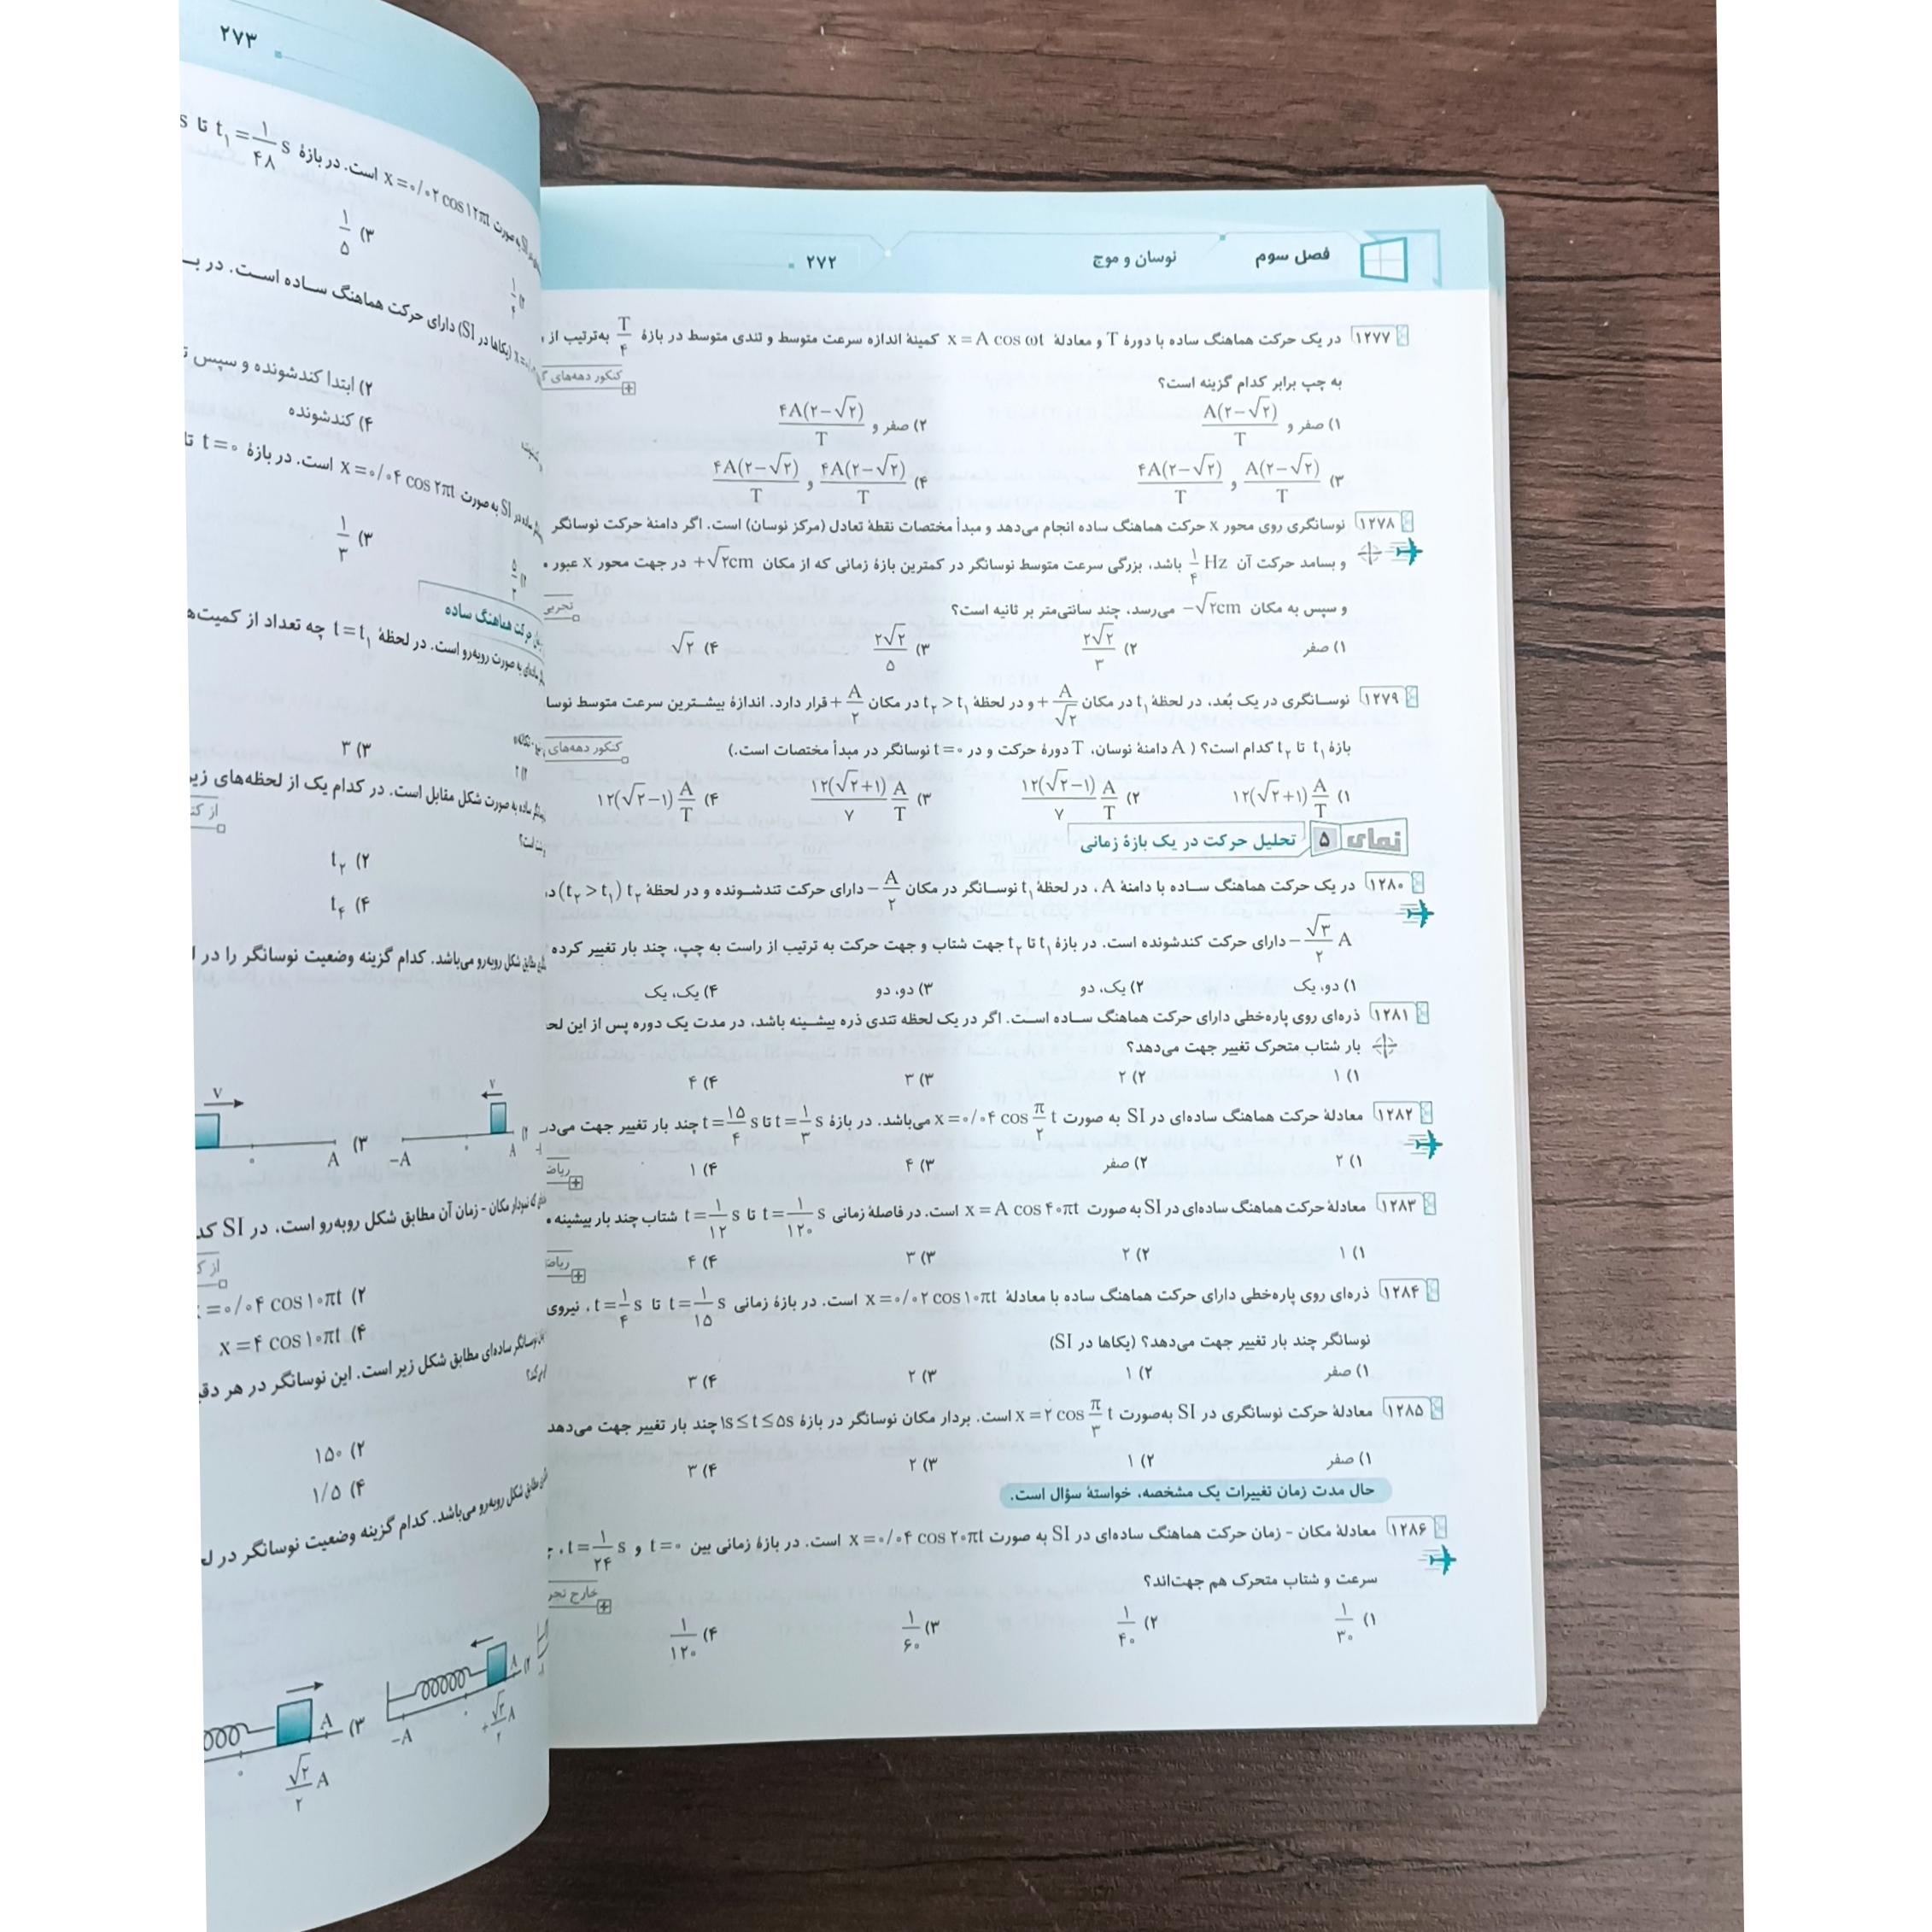 فصل سوم نوسان و موج ۲۷۲
۱۲۷۷ در یک حرکت هماهنگ ساده با دورهٔ T و معادلهٔ x = A cos ωt کمینهٔ اندازه سرعت متوسط و تندی متوسط در بازهٔ T/۴ به‌ترتیب از
کنکور دهه‌های
به چپ برابر کدام گزینه است؟
۱) صفر و A(۲−√۲)/T ۲) صفر و ۴A(۲−√۲)/T
۳) A(۲−√۲)/T و ۴A(۲−√۲)/T ۴) ۴A(۲−√۲)/T و ۴A(۲−√۲)/T
۱۲۷۸ نوسانگری روی محور x حرکت هماهنگ ساده انجام می‌دهد و مبدأ مختصات نقطهٔ تعادل (مرکز نوسان) است. اگر دامنهٔ حرکت نوسانگر
و بسامد حرکت آن ۱/۴ Hz باشد، بزرگی سرعت متوسط نوسانگر در کمترین بازهٔ زمانی که از مکان +√۲cm در جهت محور x عبور
و سپس به مکان −√۲cm می‌رسد، چند سانتی‌متر بر ثانیه است؟ تجربی
۱) صفر ۲) ۲√۲/۳ ۳) ۲√۲/۵ ۴) √۲
۱۲۷۹ نوسانگری در یک بُعد، در لحظهٔ t₁ در مکان +A/√۲ و در لحظهٔ t₂ > t₁ در مکان +A/۲ قرار دارد. اندازهٔ بیشترین سرعت متوسط
بازهٔ t₁ تا t₂ کدام است؟ (A دامنهٔ نوسان، T دورهٔ حرکت و در t=۰ نوسانگر در مبدأ مختصات است.) کنکور دهه‌های
۱) ۱۲(√۲+۱) A/T ۲) ۱۲(√۲−۱)/۷ A/T ۳) ۱۲(√۲+۱)/۷ A/T ۴) ۱۲(√۲−۱) A/T
نمای ۵ تحلیل حرکت در یک بازهٔ زمانی
۱۲۸۰ در یک حرکت هماهنگ ساده با دامنهٔ A، در لحظهٔ t₁ نوسانگر در مکان −A/۲ دارای حرکت تندشونده و در لحظهٔ t₂ (t₂ > t₁)
−√۳/۲ A دارای حرکت کندشونده است. در بازهٔ t₁ تا t₂ جهت شتاب و جهت حرکت به ترتیب از راست به چپ، چند بار تغییر کرده
۱) دو، یک ۲) یک، دو ۳) دو، دو ۴) یک، یک
۱۲۸۱ ذره‌ای روی پاره‌خطی دارای حرکت هماهنگ ساده است. اگر در یک لحظه تندی ذره بیشینه باشد، در مدت یک دوره پس از این
بار شتاب متحرک تغییر جهت می‌دهد؟
۱) ۱ ۲) ۲ ۳) ۳ ۴) ۴
۱۲۸۲ معادلهٔ حرکت هماهنگ ساده‌ای در SI به صورت x=۰/۰۴ cos π/۲ t می‌باشد. در بازهٔ t=۱/۳ s تا t=۱۵/۴ s چند بار تغییر جهت
۱) ۲ ۲) صفر ۳) ۴ ۴) ۱
۱۲۸۳ معادلهٔ حرکت هماهنگ ساده‌ای در SI به صورت x=A cos ۴۰πt است. در فاصلهٔ زمانی t=۱/۱۲۰ s تا t=۱/۱۲ s شتاب چند بار بیشینه
۱) ۱ ۲) ۲ ۳) ۳ ۴) ۴
۱۲۸۴ ذره‌ای روی پاره‌خطی دارای حرکت هماهنگ ساده با معادلهٔ x=۰/۰۲ cos ۱۰πt است. در بازهٔ زمانی t=۱/۱۵ s تا t=۱/۴ s، نیروی
نوسانگر چند بار تغییر جهت می‌دهد؟ (یکاها در SI)
۱) صفر ۲) ۱ ۳) ۲ ۴) ۳
۱۲۸۵ معادلهٔ حرکت نوسانگری در SI به‌صورت x=۲ cos π/۳ t است. بردار مکان نوسانگر در بازهٔ ۱s≤t≤۵s چند بار تغییر جهت می‌دهد
۱) صفر ۲) ۱ ۳) ۲ ۴) ۳
حال مدت زمان تغییرات یک مشخصه، خواستهٔ سؤال است.
۱۲۸۶ معادلهٔ مکان - زمان حرکت هماهنگ ساده‌ای در SI به صورت x=۰/۰۴ cos ۲۰πt است. در بازهٔ زمانی بین t=۰ و t=۱/۲۴ s،
سرعت و شتاب متحرک هم جهت‌اند؟ خارج
۱) ۱/۳۰ ۲) ۱/۴۰ ۳) ۱/۶۰ ۴) ۱/۱۲۰
۲۷۳
به صورت x=۰/۰۲ cos ۱۲πt است. در بازهٔ t₁=۱/۴۸ s تا
۳) ۱/۵
(یکاها در SI) دارای حرکت هماهنگ ساده است. در
۲) ابتدا کندشونده و سپس
۴) کندشونده
ساده در SI به صورت x=۰/۰۴ cos ۲πt است. در بازهٔ t=۰ تا
۳) ۱/۳
حرکت هماهنگ ساده
به صورت روبه‌رو است. در لحظهٔ t=t₁ چه تعداد از
۳) ۳
ساده به صورت شکل مقابل است. در کدام یک از لحظه‌های
۲) t₂
۴) t₄
مطابق شکل روبه‌رو می‌باشد. کدام گزینه وضعیت نوسانگر را در
V V
۳) A −A
که نمودار مکان - زمان آن مطابق شکل روبه‌رو است، در SI
۲) x=۰/۰۴ cos ۱۰πt
۴) x=۴ cos ۱۰πt
نوسانگر ساده‌ای مطابق شکل زیر است. این نوسانگر در هر
۲) ۱۵۰
۴) ۱/۵
مطابق شکل روبه‌رو می‌باشد. کدام گزینه وضعیت نوسانگر در
−A +√۳/۲ A A
۳) A √۲/۲ A